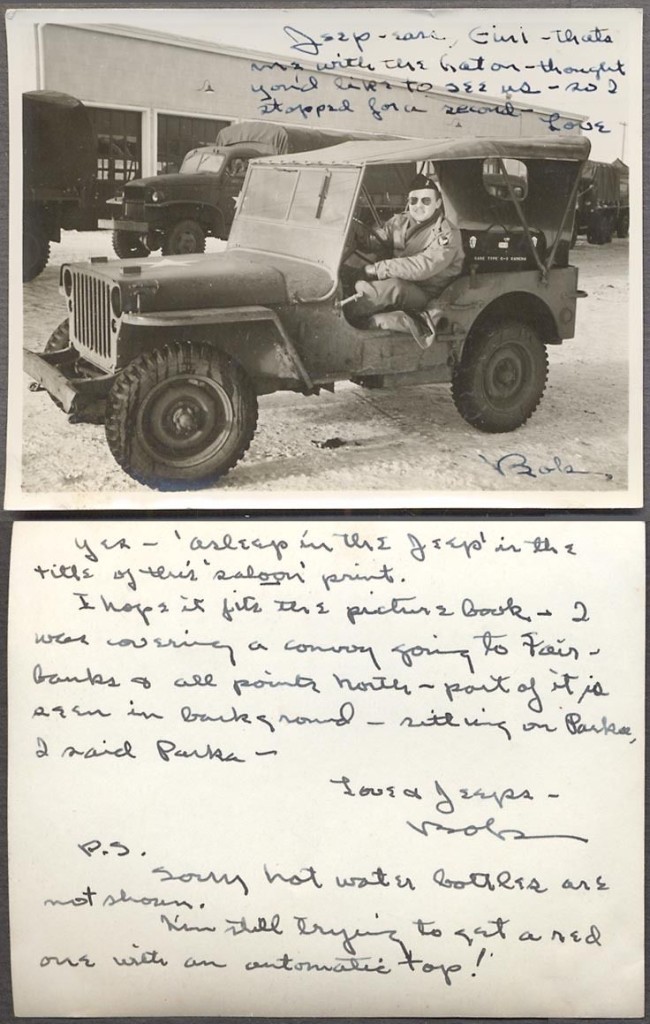 Jeep-ears, Gini - thats
me with the hat on - thought
you'd like to see us - so I
stopped for a second -
Love
CASE TYPE
Bob
Yes - 'asleep in the Jeep' is the
title of this 'saloon' print.
I hope it fits the picture book - I
was covering a convoy going to Fair-
banks & all points North - part of it is
seen in background - sitting on Parka,
I said Parka -
Love & Jeeps -
Bob
P.S.
Sorry hot water bottles are
not shown.
I'm still trying to get a red
one with an automatic top!